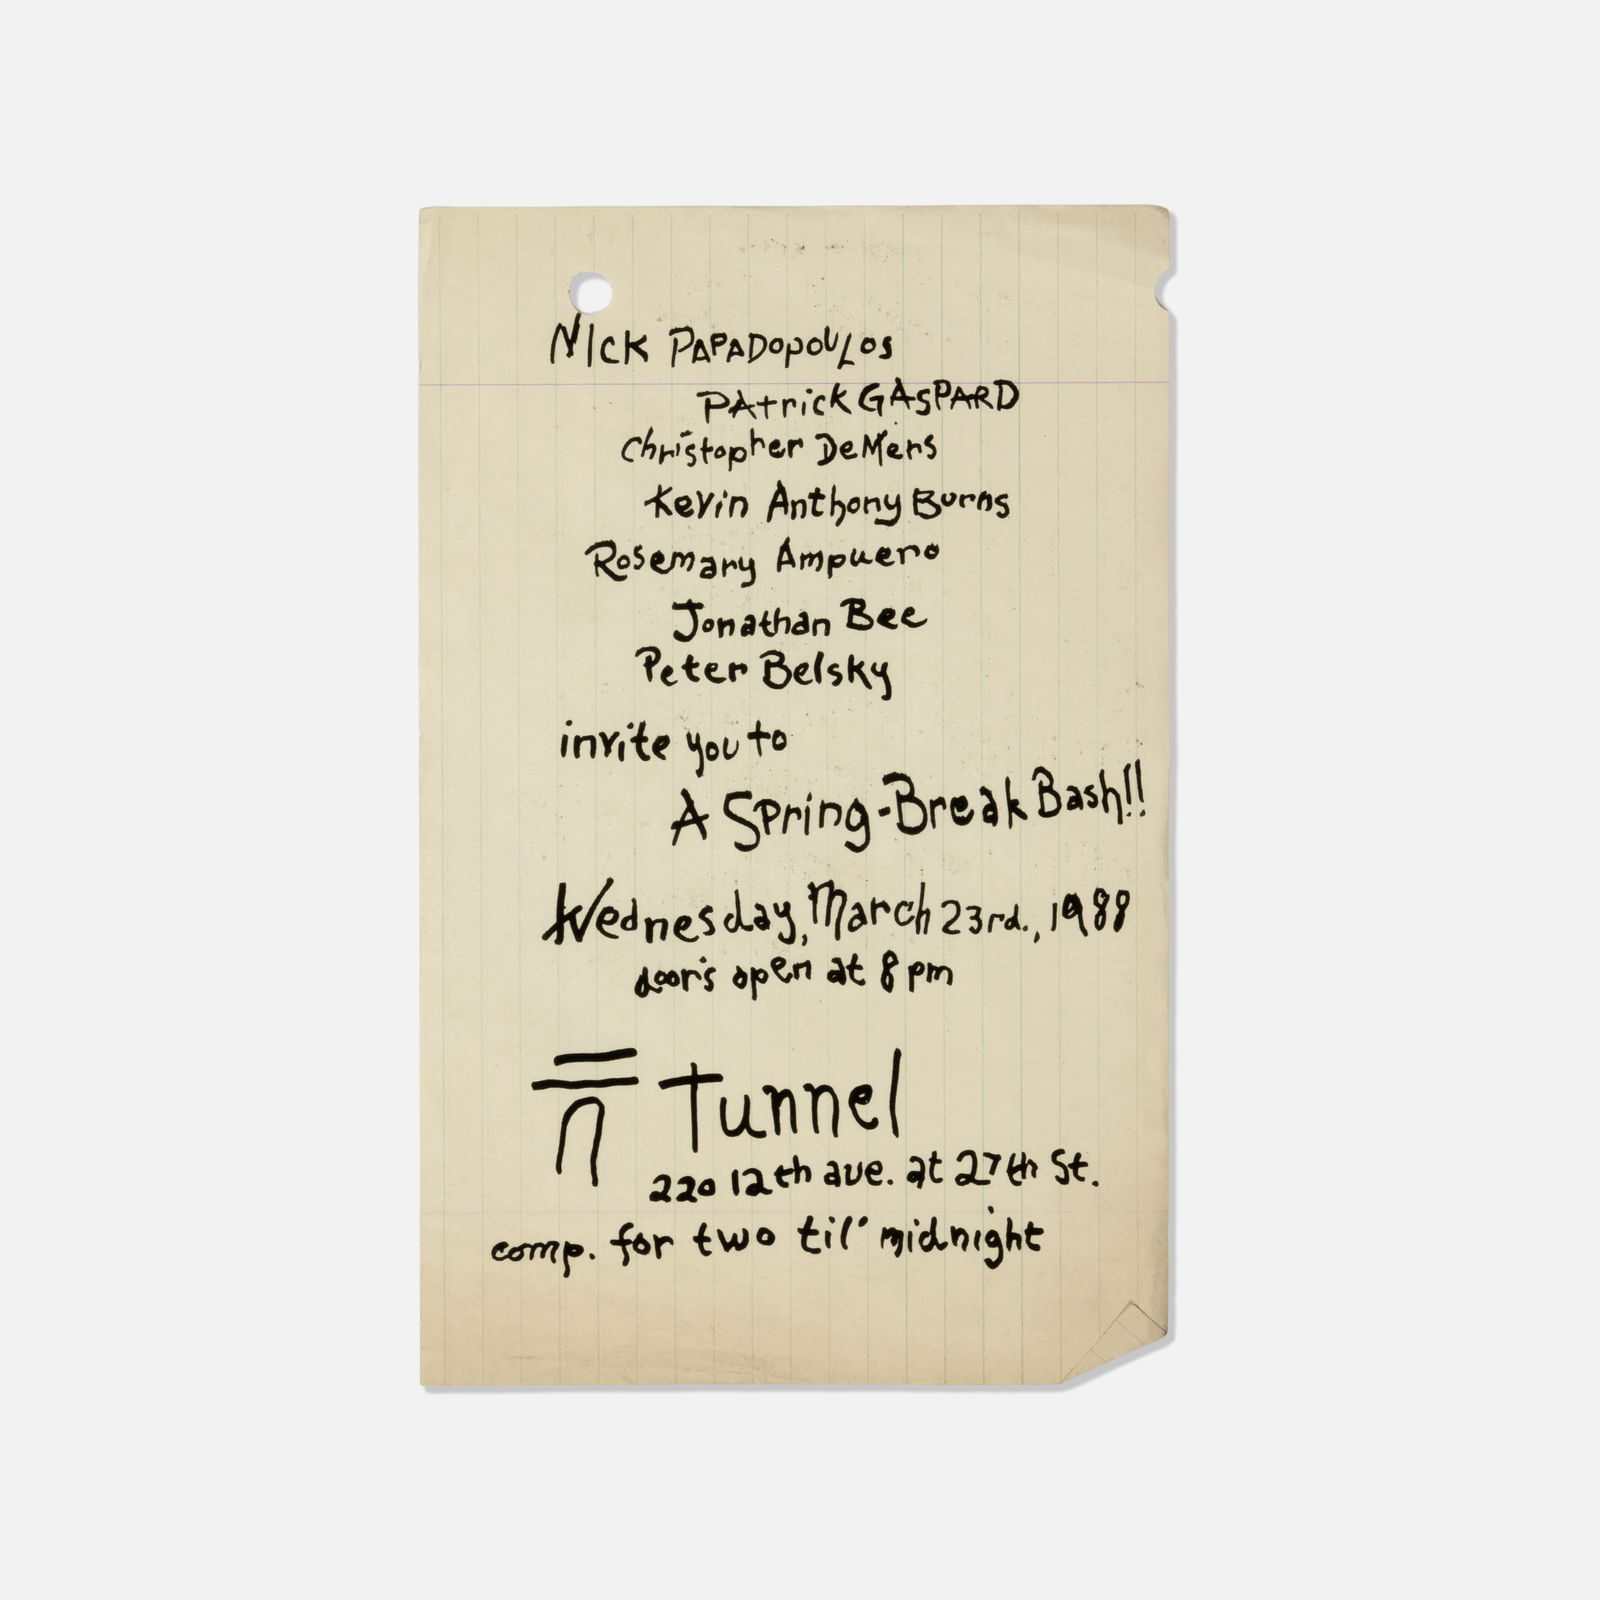 NICK PAPADOPOULOS
PAtrick GASPARD
Christopher DeMers
Kevin Anthony Burns
Rosemary Ampuero
Jonathan Bee
Peter Belsky
invite you to
A Spring-Break Bash!!
Wednesday, March 23rd., 1988
doors open at 8 pm
Tunnel
220 12th ave. at 27th St.
comp. for two til' midnight